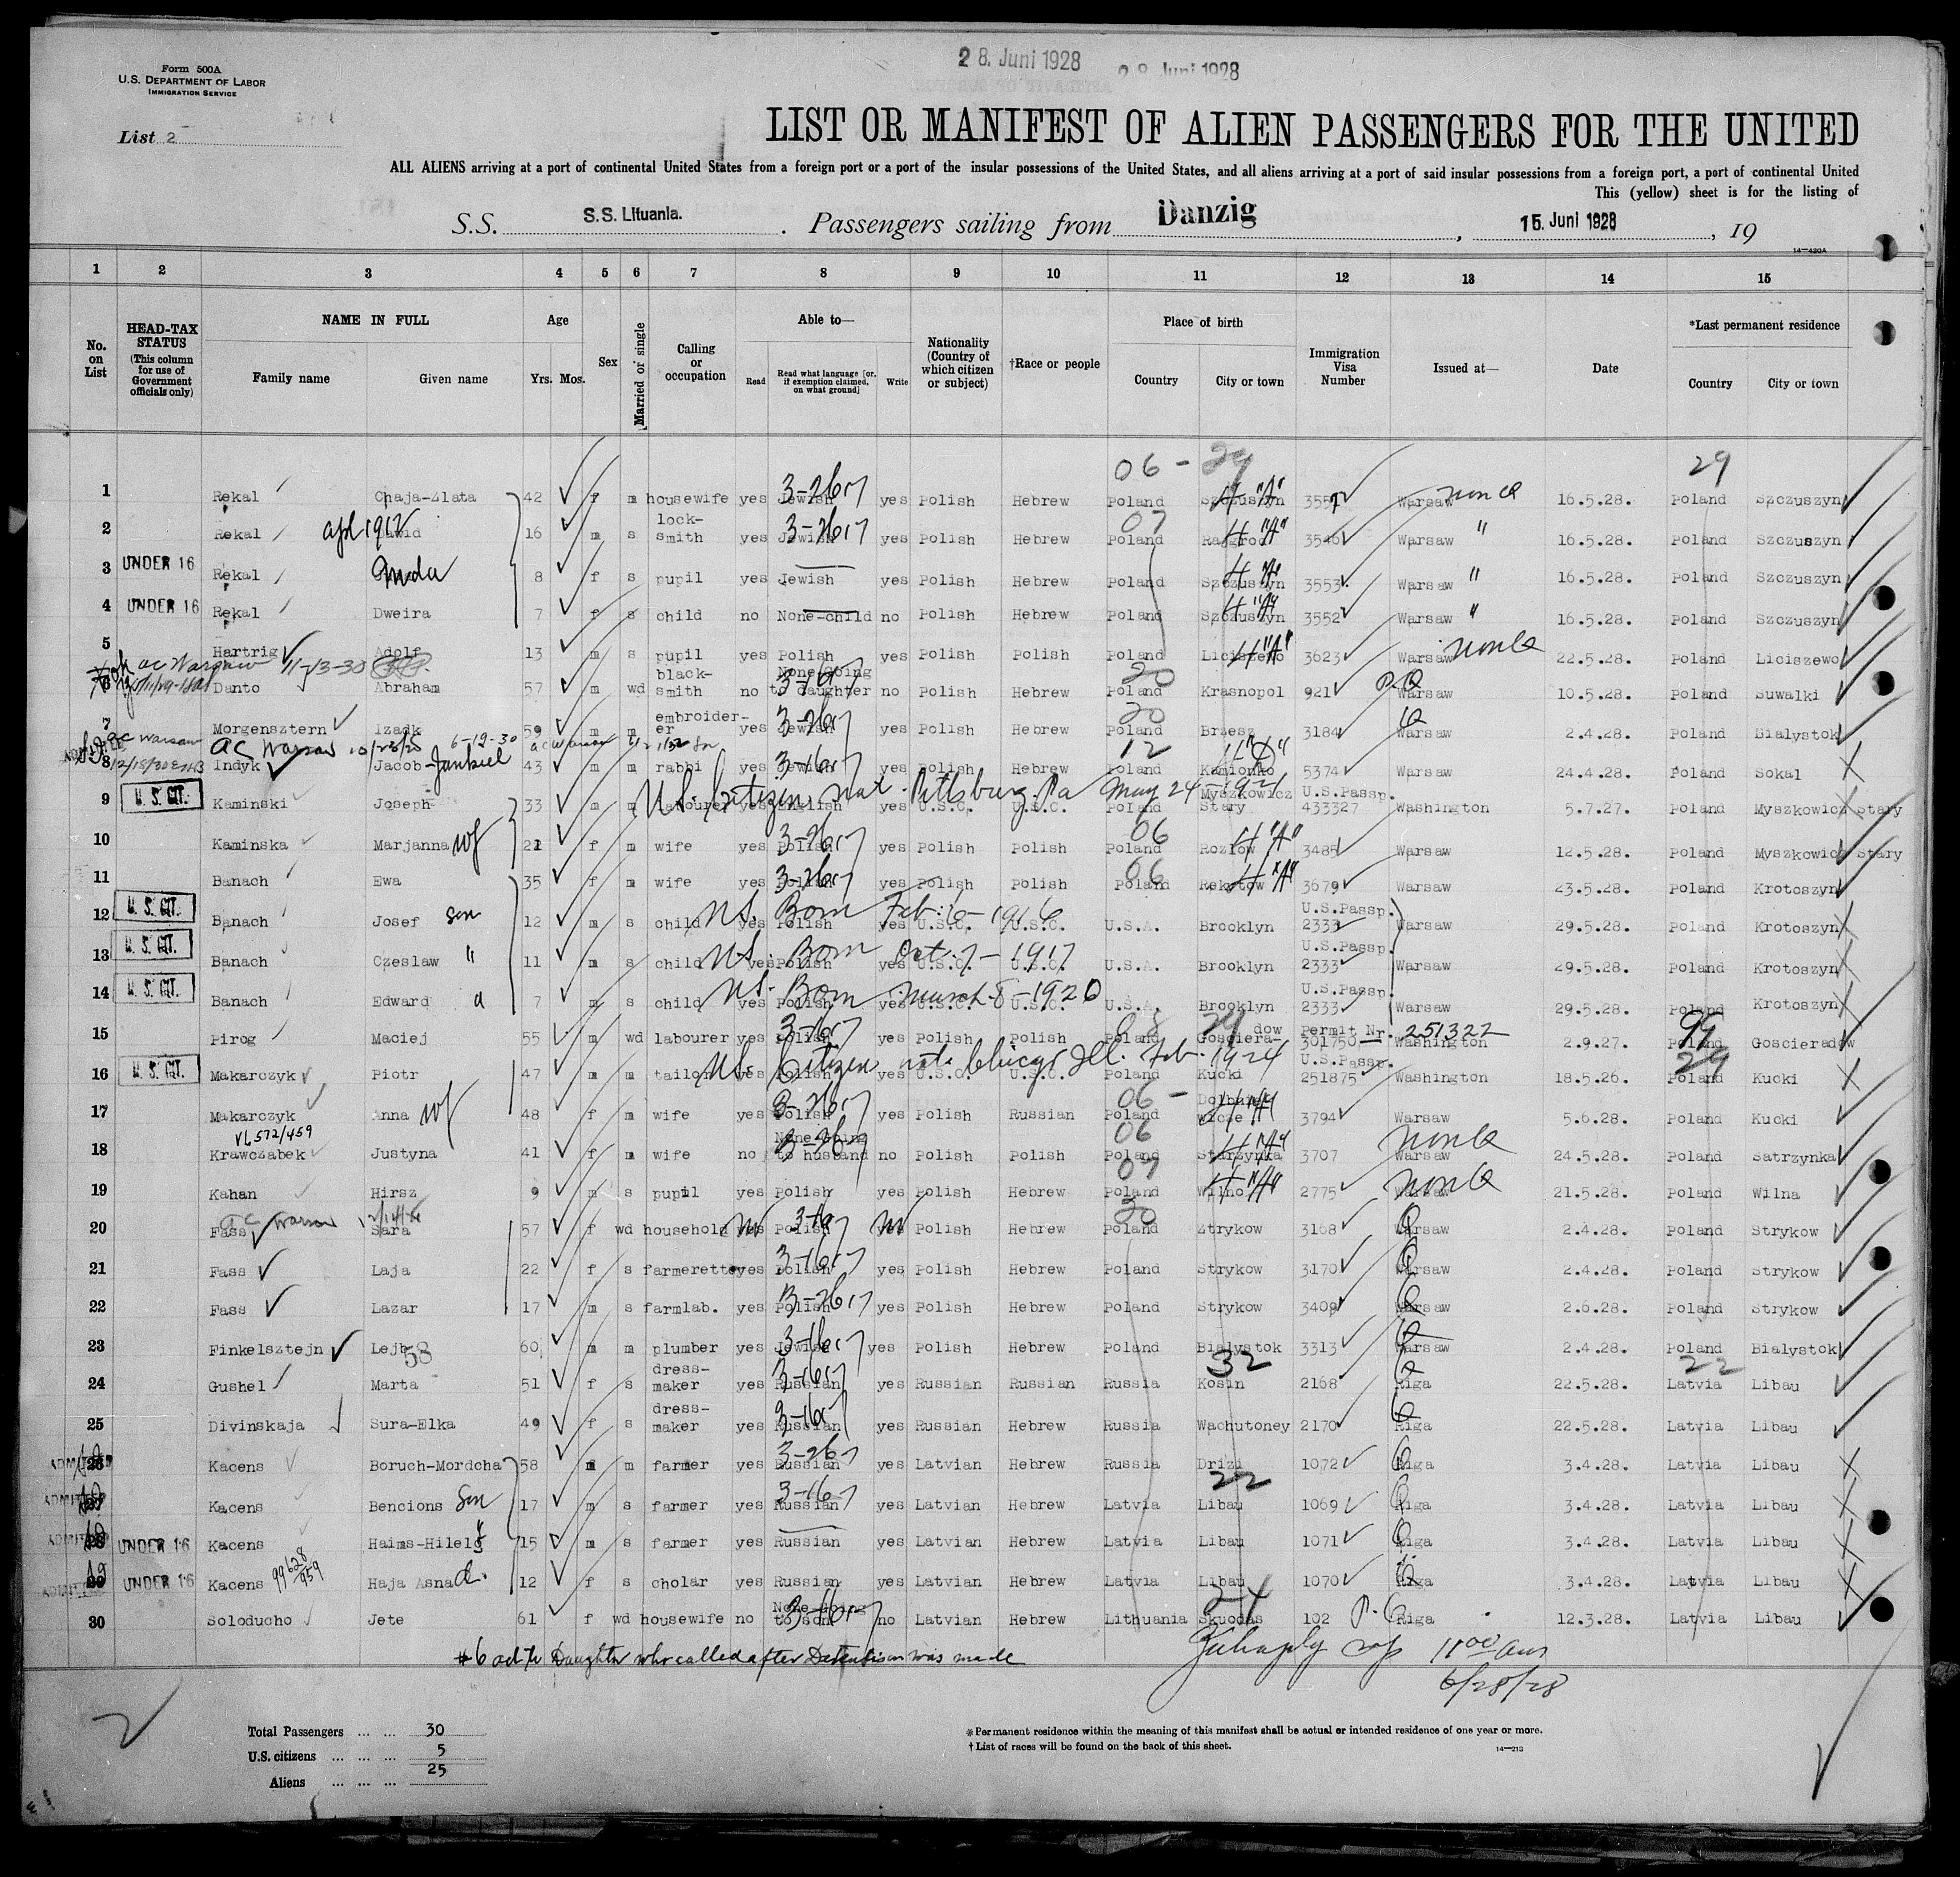 28. Juni 1928 28. Juni 1928
Form 500A
U.S. DEPARTMENT OF LABOR
IMMIGRATION SERVICE
List 2
LIST OR MANIFEST OF ALIEN PASSENGERS FOR THE UNITED
ALL ALIENS arriving at a port of continental United States from a foreign port or a port of the insular possessions of the United States, and all aliens arriving at a port of said insular possessions from a foreign port, a port of continental United
This (yellow) sheet is for the listing of
S.S. S.S. Lituania. Passengers sailing from Danzig, 15. Juni 1928, 19
14-480A
1 2 3 4 5 6 7 8 9 10 11 12 13 14 15
No. on List
HEAD-TAX STATUS (This column for use of Government officials only)
NAME IN FULL
Family name Given name
Age Yrs. Mos.
Sex
Married or single
Calling or occupation
Able to—
Read Read what language [or, if exemption claimed, on what ground] Write
Nationality (Country of which citizen or subject)
†Race or people
Place of birth
Country City or town
Immigration Visa Number
Issued at—
Date
*Last permanent residence
Country City or town
06 - 29 29
1 Rekal Chaja-Zlata 42 f m housewife yes Jewish 3-26 yes Polish Hebrew Poland Szczuszyn 4 "A" 3557 Warsaw non Q 16.5.28. Poland Szczuszyn
2 Rekal apl 1912 16 m s lock-smith yes Jewish 3-26 yes Polish Hebrew 07 Poland 4 "A" 3546 Warsaw " 16.5.28. Poland Szczuszyn
3 UNDER 16 Rekal 8 f s pupil yes Jewish yes Polish Hebrew Poland Szczuszyn 3553 Warsaw " 16.5.28. Poland Szczuszyn
4 UNDER 16 Rekal Dweira 7 f s child no None-child no Polish Hebrew Poland Szczuszyn 4 "A" 3552 Warsaw " 16.5.28. Poland Szczuszyn
5 Hartrig Adolf 13 m s pupil yes Polish yes Polish Polish Poland Liciszewo 4 "A" 3623 Warsaw non Q 22.5.28. Poland Liciszewo
ac Warsaw 11-13-30
6 Danto Abraham 57 m wd black-smith no None-Going to daughter no Polish Hebrew 20 Poland Krasnopol 921 Warsaw 10.5.28. Poland Suwalki
7 Morgensztern Izadk 59 m m embroider-er yes Jewish 3-26 yes Polish Hebrew 20 Poland Brzesz 3184 Q Warsaw 2.4.28. Poland Bialystok
ac Warsaw 6-19-30 ac Warsaw
8 Indyk Jacob Jankiel 43 m m rabbi yes Jewish yes Polish Hebrew 12 Poland Kamionko 5374 Warsaw 24.4.28. Poland Sokal
9 U. S. CIT. Kaminski Joseph 33 m m labourer yes English yes U.S.C. U.S.C. Poland Myszkowicz Stary U.S.Passp. 433327 Washington 5.7.27. Poland Myszkowicz Stary
U.S. Citizen nat. Pittsburg, Pa May 24-1921
10 Kaminska Marjanna wf f m wife yes Polish 3-26 yes Polish Polish 06 Poland Rozlow 4 "A" 3485 Warsaw 12.5.28. Poland Myszkowicz Stary
11 Banach Ewa 35 f m wife yes Polish 3-26 yes Polish Polish 06 Poland 4 "A" 3679 Warsaw 23.5.28. Poland Krotoszyn
12 U. S. CIT. Banach Josef son 12 m s child yes Polish yes U.S.C. U.S.C. U.S.A. Brooklyn U.S.Passp. 2333 Warsaw 29.5.28. Poland Krotoszyn
U.S. Born Feb. 6-1916
13 U. S. CIT. Banach Czeslaw " 11 m s child yes Polish yes U.S.C. U.S.C. U.S.A. Brooklyn U.S.Passp. 2333 Warsaw 29.5.28. Poland Krotoszyn
U.S. Born Oct. 7-1917
14 U. S. CIT. Banach Edward 7 m s child yes Polish yes U.S.C. U.S.C. U.S.A. Brooklyn U.S.Passp. 2333 Warsaw 29.5.28. Poland Krotoszyn
U.S. Born March 8-1920
15 Pirog Maciej 55 m wd labourer yes Polish yes Polish Polish Poland Gosciera-dow Permit Nr. 301750 251322 Washington 2.9.27. Poland Goscieradow
16 U. S. CIT. Makarczyk Piotr 47 m m tailor yes Polish yes U.S.C. U.S.C. Poland Kucki U.S.Passp. 251875 Washington 18.5.26. Poland Kucki
U.S. Citizen nat. Chicago Ill. Feb. 1924
17 Makarczyk Anna wf 48 f m wife yes Polish 3-26 yes Polish Russian 06 - Poland 3794 Warsaw 5.6.28. Poland Kucki
VL572/459
18 Krawczabek Justyna 41 f m wife no None-Going to husband no Polish Polish 06 Poland Starzynka 4 "A" 3707 Warsaw non Q 24.5.28. Poland Satrzynka
19 Kahan Hirsz 9 m s pupil yes Polish yes Polish Hebrew 07 Poland Wilno 4 "A" 2775 Warsaw non Q 21.5.28. Poland Wilna
ac Warsaw
20 Fass Sara 57 f wd household yes Polish yes Polish Hebrew 20 Poland Ztrykow 3168 Q Warsaw 2.4.28. Poland Strykow
21 Fass Laja 22 f s farmerette yes Polish yes Polish Hebrew Poland Strykow 3170 Q Warsaw 2.4.28. Poland Strykow
22 Fass Lazar 17 m s farmlab. yes Polish 3-26 yes Polish Hebrew Poland Strykow 3409 Q Warsaw 2.6.28. Poland Strykow
23 Finkelsztejn Lejb 58 60 m m plumber yes Jewish yes Polish Hebrew Poland Bialystok 3313 Q Warsaw 2.4.28. Poland Bialystok
24 Gushel Marta 51 f s dress-maker yes Russian yes Russian Russian Russia 32 Kosin 2168 Q Riga 22.5.28. 22 Latvia Libau
25 Divinskaja Sura-Elka 49 f s dress-maker yes Russian yes Russian Hebrew Russia Wachutoney 2170 Q Riga 22.5.28. Latvia Libau
26 ADMITTED Kacens Boruch-Mordcha 58 m m farmer yes Russian 3-26 yes Latvian Hebrew Russia Drizi 1072 Q Riga 3.4.28. Latvia Libau
27 ADMITTED Kacens Bencions son 17 m s farmer yes Russian 3-16 yes Latvian Hebrew Latvia 22 Libau 1069 Q Riga 3.4.28. Latvia Libau
28 ADMITTED UNDER 16 Kacens Haims-Hilels 15 m s farmer yes Russian yes Latvian Hebrew Latvia Libau 1071 Q Riga 3.4.28. Latvia Libau
29 ADMITTED UNDER 16 Kacens 99628/959 Haja Asna d. 12 f s cholar yes Russian yes Latvian Hebrew Latvia Libau 1070 Q Riga 3.4.28. Latvia Libau
30 Soloducho Jete 61 f wd housewife no None-Going to son no Latvian Hebrew Lithuania 24 Skuodas 102 P. Q Riga 12.3.28. Latvia Libau
#6 ad to Daughter who called after Detention was made
11 00 am
6/28/28
Total Passengers ... ... 30
U.S. citizens ... ... ... 5
Aliens ... ... ... 25
*Permanent residence within the meaning of this manifest shall be actual or intended residence of one year or more.
†List of races will be found on the back of this sheet.
14-213